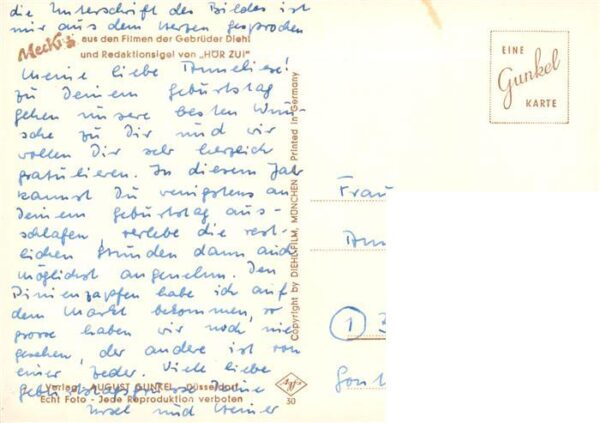 die Unterschrift des Bildes ist
mir aus dem Herzen gesprochen
Mecki's aus den Filmen der Gebrüder Diehl
und Redaktionsigel von „HÖR ZU!"
Meine liebe Anneliese!
zu Deinem Geburtstag
gehen unsere besten Wün-
sche zu Dir und wir
wollen Dir sehr herzlich
gratulieren. In diesem Jahr
kannst Du wenigstens an
Deinem Geburtstag aus-
schlafen, verlebe die rest-
lichen Stunden dann auch
möglichst angenehm. Den
Pinienzapfen habe ich auf
dem Markt bekommen, so
grosse haben wir noch nie
gesehen, der andere ist von
einer Zeder. Viele liebe
Geburtstagsgrüsse Deine
Ursel und Werner
Verlag - AUGUST GUNKEL - Düsseldorf
Echt Foto - Jede Reproduktion verboten
Copyright by DIEHLFILM, MÜNCHEN Printed in Germany
Agfa
30
EINE
Gunkel
KARTE
Frau
1